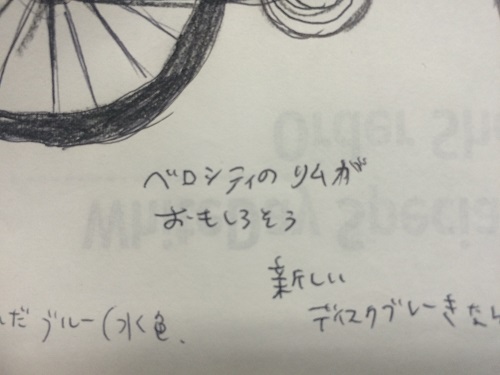 Order Sh
WhiteDay Specia
ベロシティの リムが
おもしろそう
新しい
ディスクブレーき
だ ブルー(水く色.